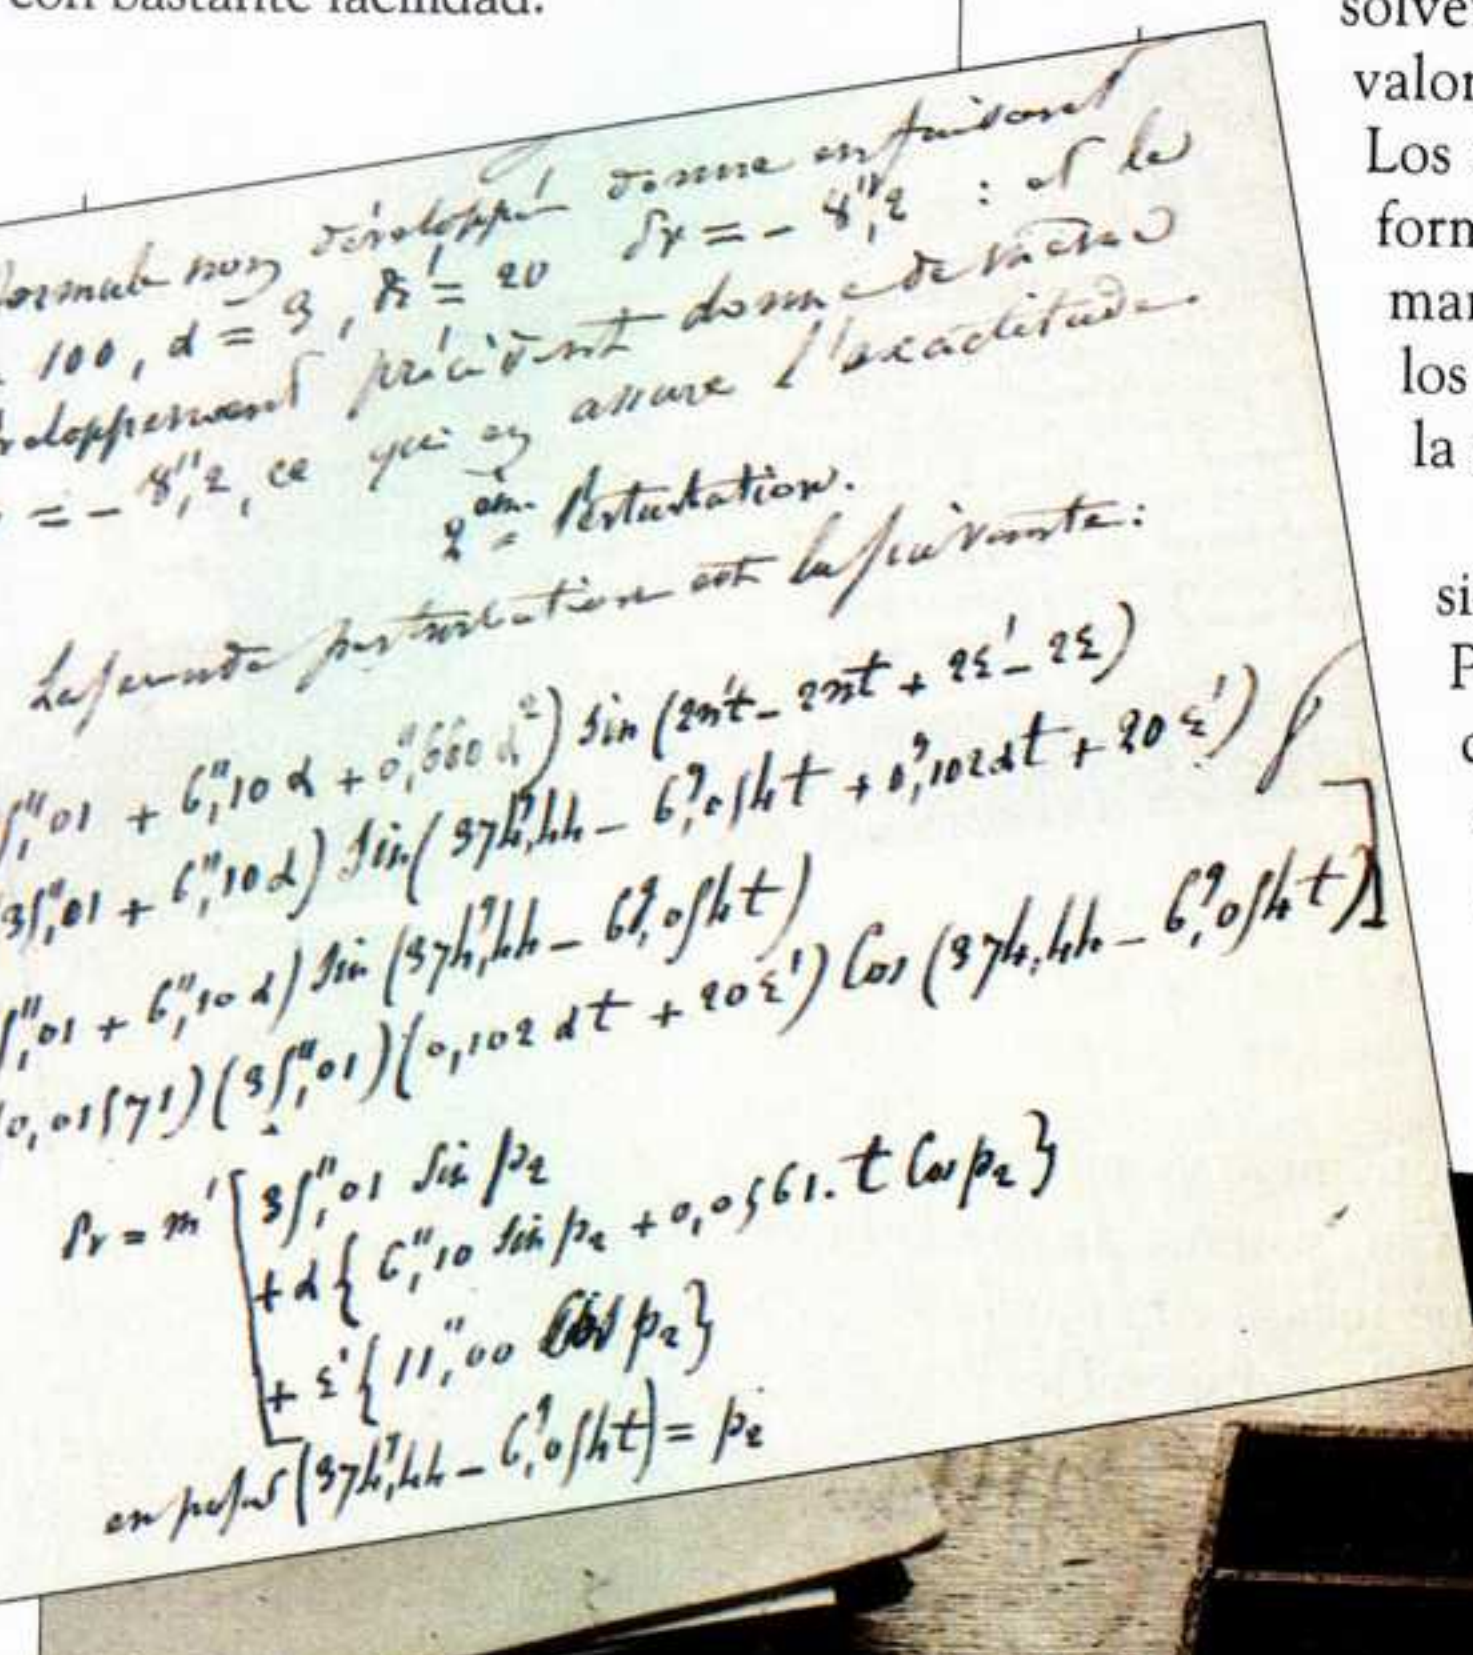 con bastante facilidad.
formule non développée donne en faisant
100, α = 9, δε' = 20 δv = - 8",2 : et le
développement précédent donne de même
= - 8",2, ce qui en assure l'exactitude.
2ème Perturbation.
La seconde perturbation est la suivante :
5",01 + 6",10 α + 0",660 α²) Sin (2n't - 2nt + 2ε' - 2ε)
35",01 + 6",10 α) Sin (374g,44 - 6g,054 t + 0g,102 αt + 20 ε')
5",01 + 6",10 α) Sin (374g,44 - 6g,054 t)
0,01571) (35",01) (0,102 αt + 20 ε') Cos (374,44 - 6g,054 t)]
δv = m' [ 35",01 Sin p₂
+ α { 6",10 Sin p₂ + 0,0561. t Cos p₂ }
+ ε' { 11",00 Cos p₂ }
en posant (374g,44 - 6g,054 t) = p₂
valor
Los
form
man
los
la
si
P